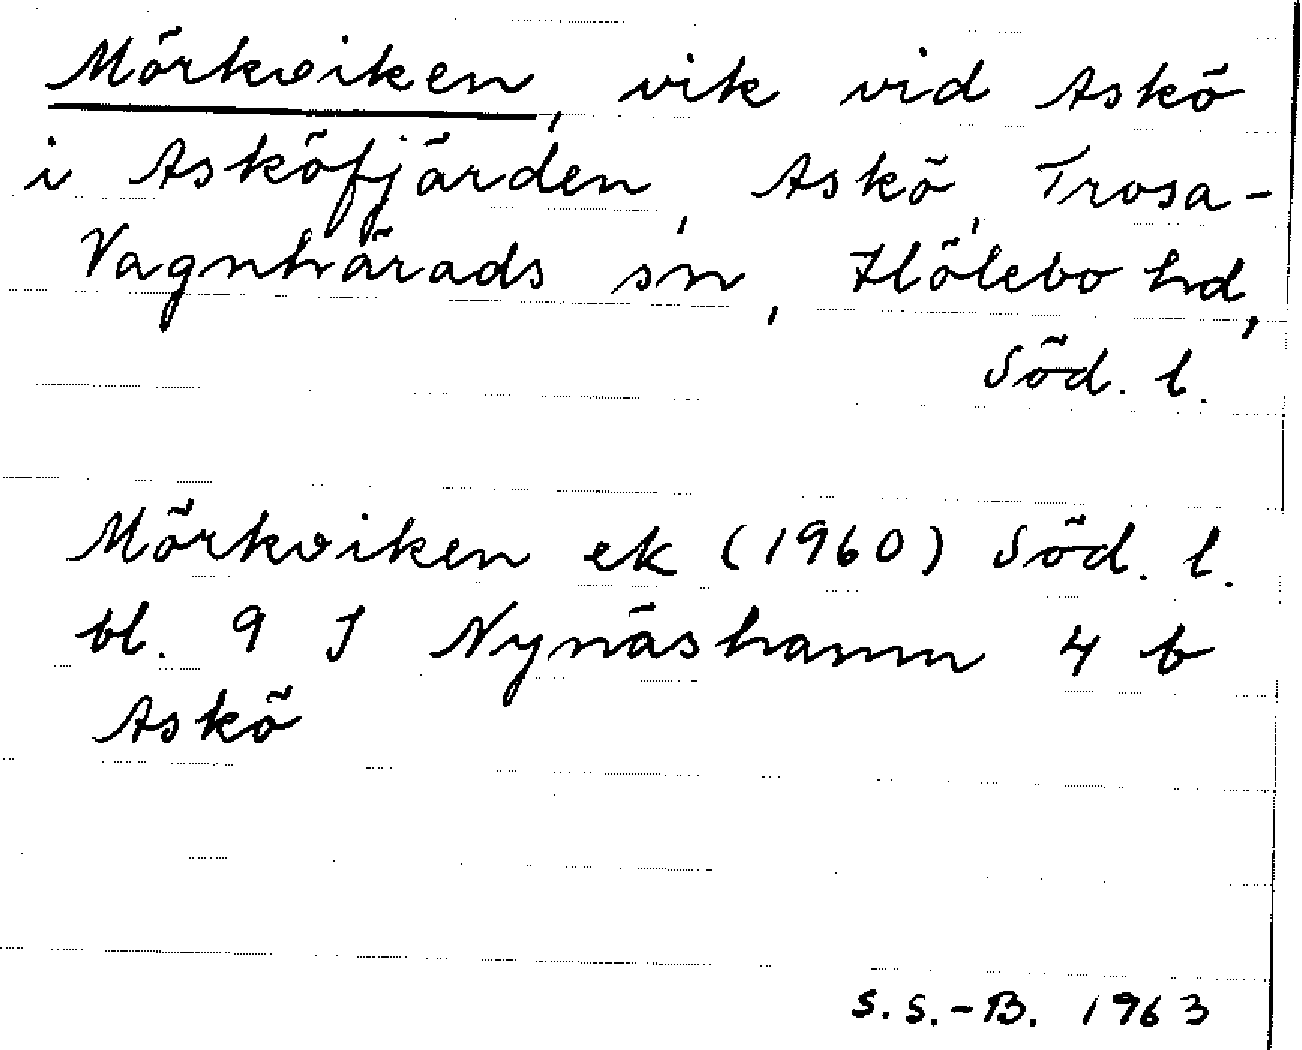 Mörkviken, vik vid Askö
i Asköfjärden, Askö, Trosa-
Vagnhärads sn, Hölebo hd,
Söd. l.
Mörkviken ek (1960) Söd. l.
bl. 9 I Nynäshamn 4 b
Askö
S.S.-B. 1963